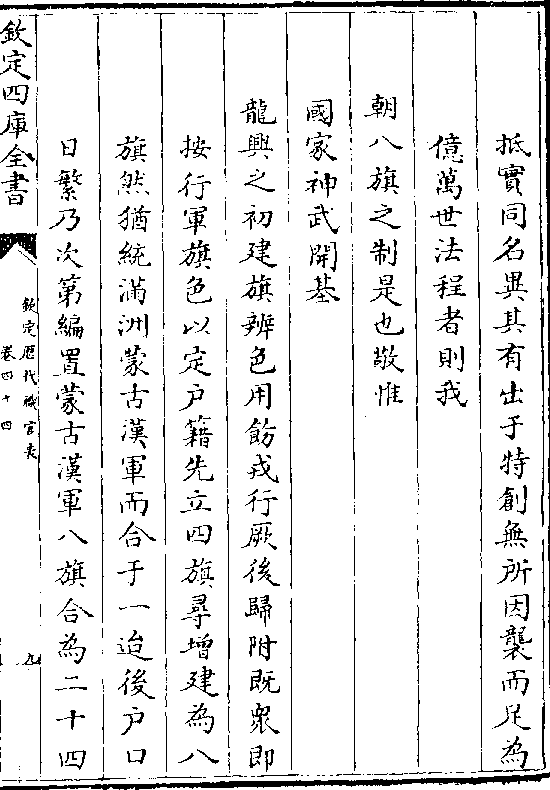 抵實同名異其有出于特創無所因襲而足為
億萬世法程者則我
朝八旗之制是也敬惟
國家神武開基
龍興之初建旗辨色用飭戎行厥後歸附既衆即
按行軍旗色以定户籍先立四旗尋增建為八
旗然猶統滿洲蒙古漢軍而合于一迨後户口
日繁乃次第編置蒙古漢軍八旗合為二十四
欽定四庫全書
欽定歷代職官表
卷四十四
九